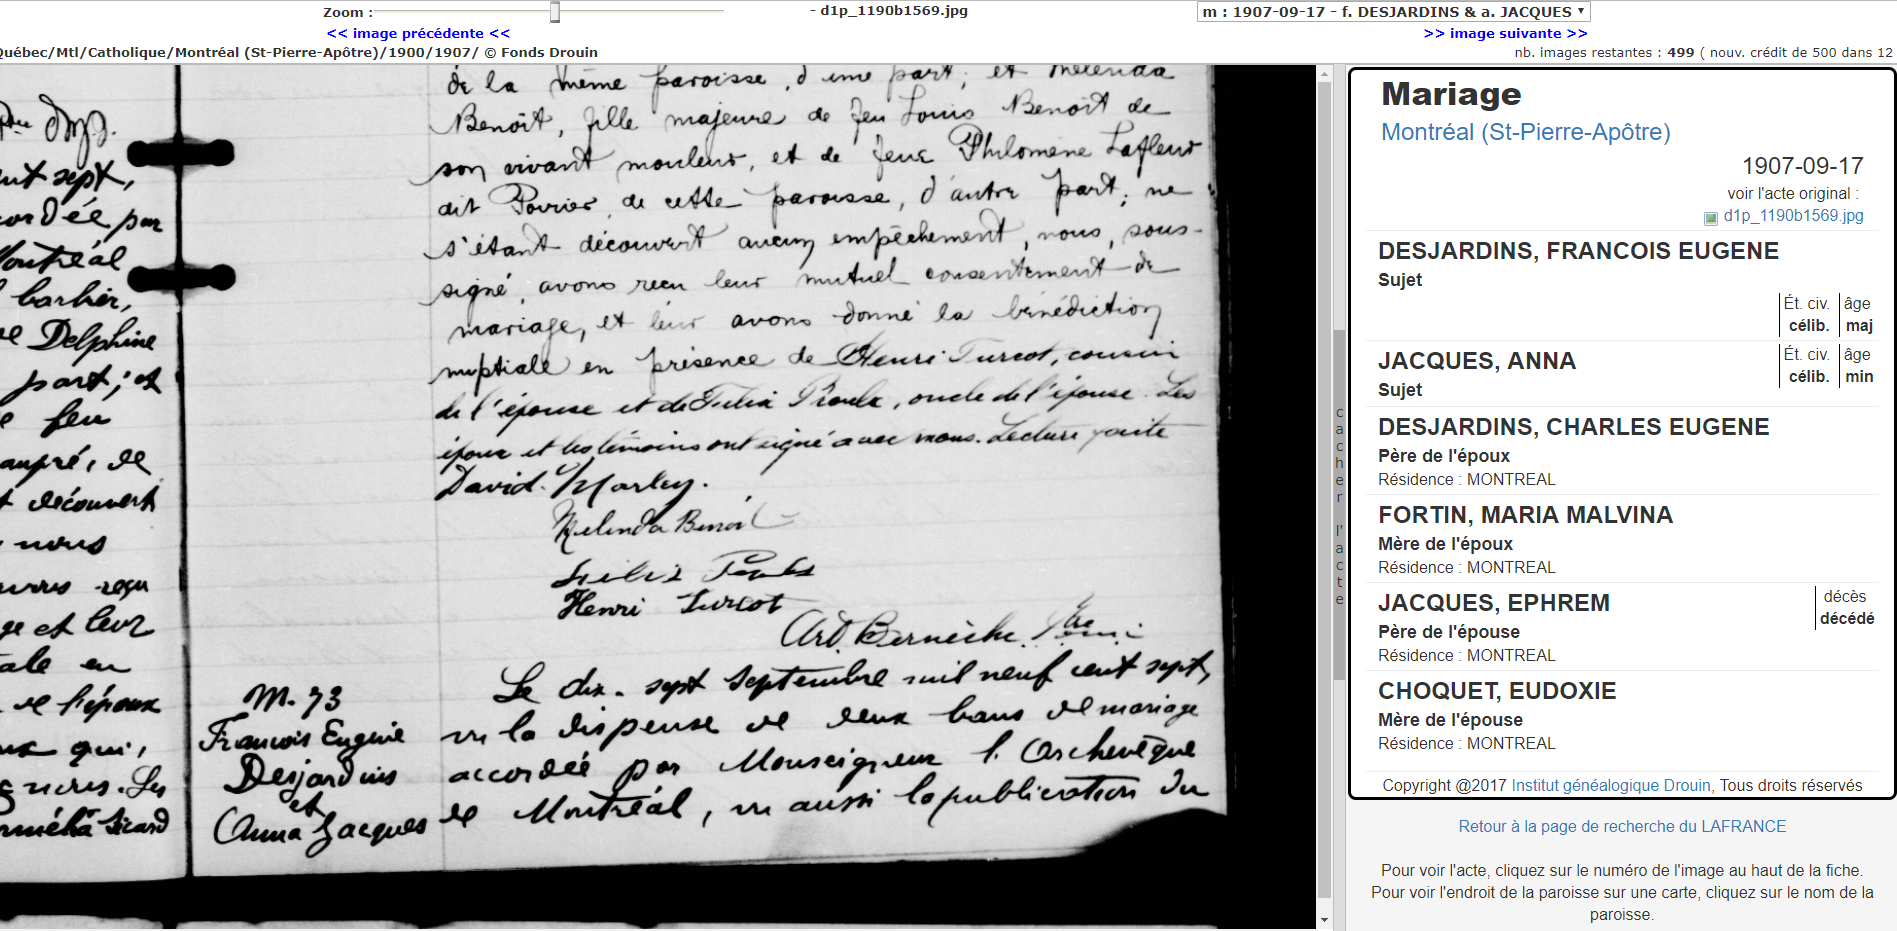 Zoom :
- d1p_1190b1569.jpg
m : 1907-09-17 - f. DESJARDINS & a. JACQUES
<< image précédente <<
>> image suivante >>
Québec/Mtl/Catholique/Montréal (St-Pierre-Apôtre)/1900/1907/ © Fonds Drouin
nb. images restantes : 499 ( nouv. crédit de 500 dans 12
ptre
ent sept,
cordée par
Montréal
barbier,
Delphine
part; et
feu
aupré, de
découvert
nous
reçu
ge et leur
ale en
de l'époux
qui,
nous. Les
Sicard
de la même paroisse, d'une part; et Melenda
Benoît, fille majeure de feu Louis Benoît de
son vivant mouleur, et de feue Philomène Lafleur
dit Poirier, de cette paroisse, d'autre part; ne
s'étant découvert aucun empêchement, nous, sous-
signé, avons reçu leur mutuel consentement de
mariage, et leur avons donné la bénédiction
nuptiale en présence de Henri Turcot, cousin
de l'épouse et de Félix Proulx, oncle de l'épouse. Les
époux et les témoins ont signé avec nous. Lecture faite
David Morley.
Melinda Benoit
Félix
Henri Turcot
Ard. Bernèche Ptre
M. 73
Francois Eugène
Desjardins
et
Anna Jacques
Le dix-sept septembre mil neuf cent sept,
vu la dispense de deux bans de mariage
accordée par Monseigneur l'Archevêque
de Montréal, vu aussi la publication du
cacher l'acte
Mariage
Montréal (St-Pierre-Apôtre)
1907-09-17
voir l'acte original :
d1p_1190b1569.jpg
DESJARDINS, FRANCOIS EUGENE
Sujet
Ét. civ. âge
célib. maj
JACQUES, ANNA
Ét. civ. âge
célib. min
Sujet
DESJARDINS, CHARLES EUGENE
Père de l'époux
Résidence : MONTREAL
FORTIN, MARIA MALVINA
Mère de l'époux
Résidence : MONTREAL
JACQUES, EPHREM
décès
décédé
Père de l'épouse
Résidence : MONTREAL
CHOQUET, EUDOXIE
Mère de l'épouse
Résidence : MONTREAL
Copyright @2017 Institut généalogique Drouin, Tous droits réservés
Retour à la page de recherche du LAFRANCE
Pour voir l'acte, cliquez sur le numéro de l'image au haut de la fiche.
Pour voir l'endroit de la paroisse sur une carte, cliquez sur le nom de la
paroisse.